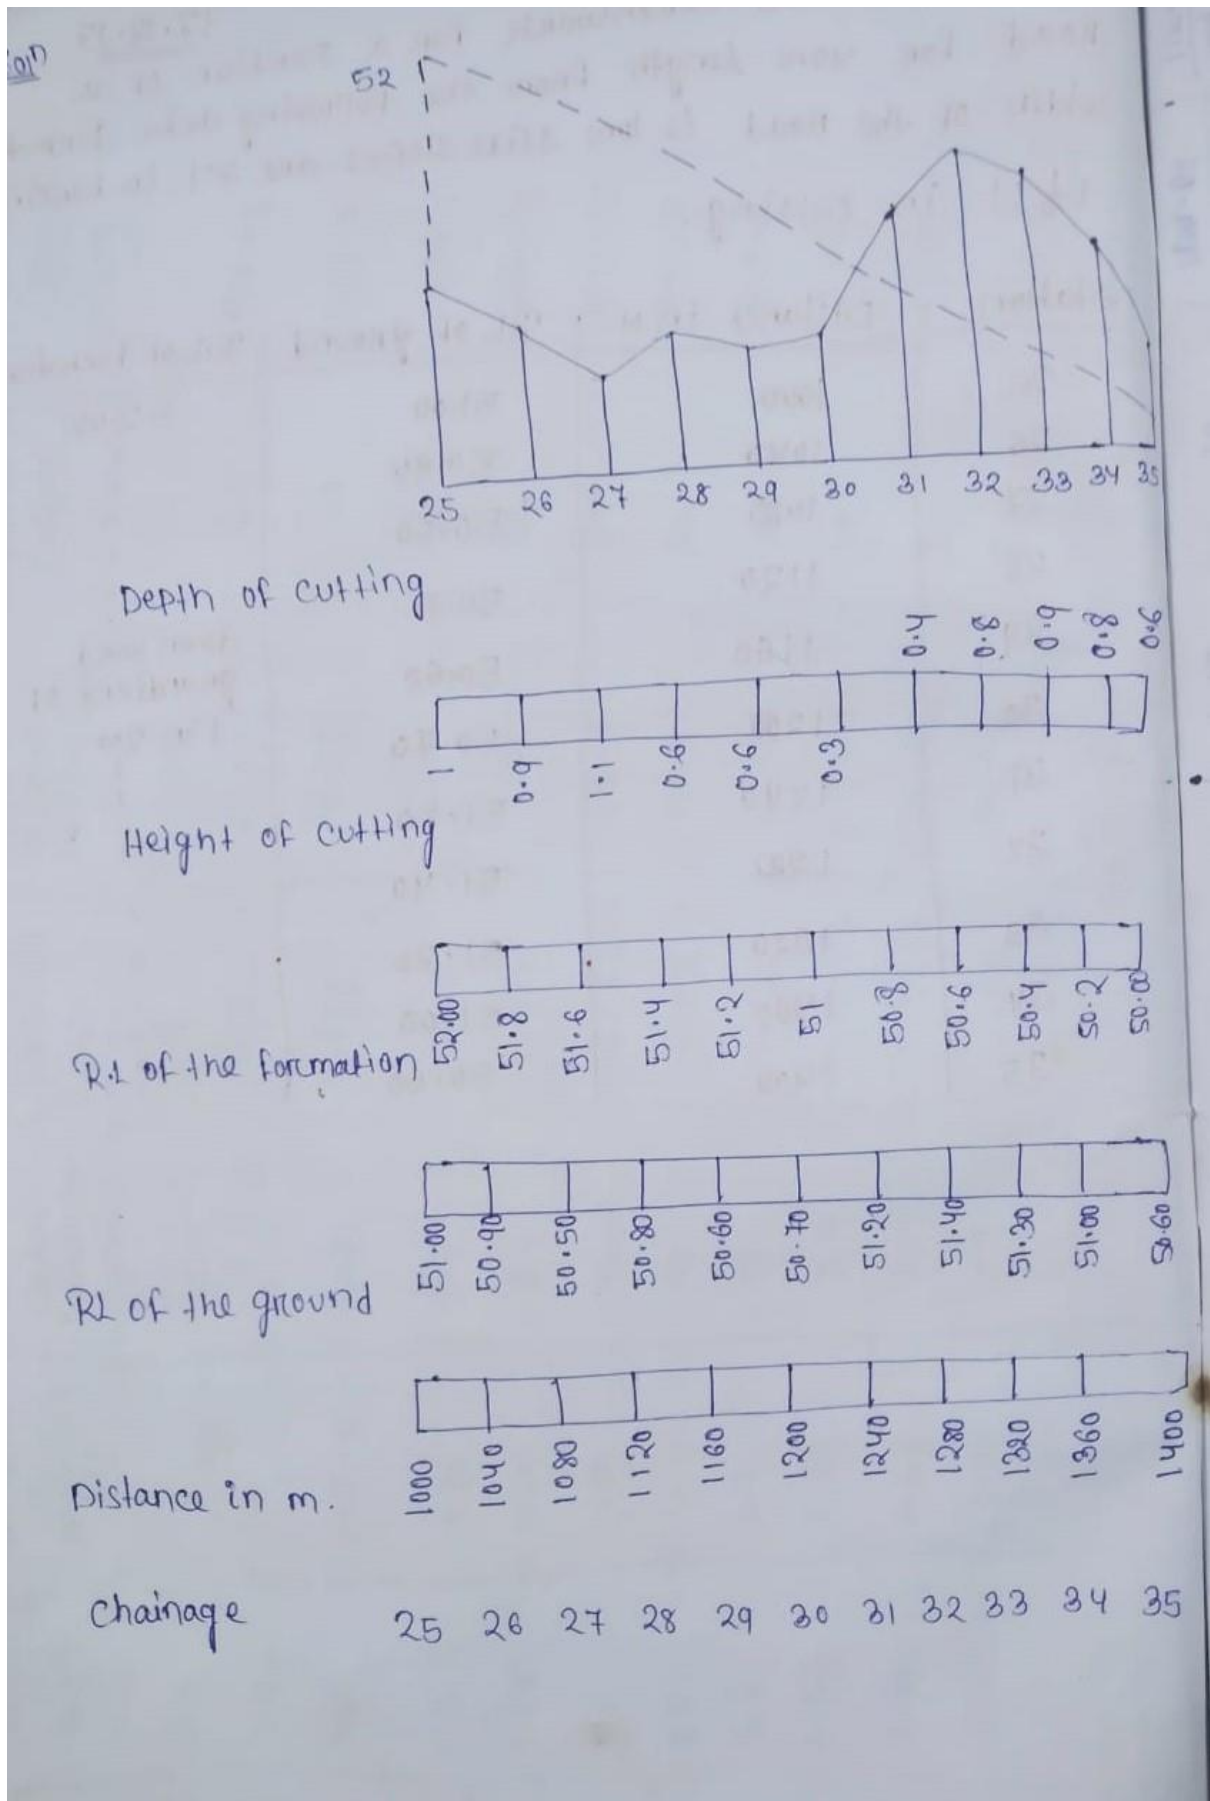 52
25 26 27 28 29 30 31 32 33 34 35
Depth of cutting
0.4 0.8 0.9 0.8 0.6
1 0.9 1.1 0.6 0.6 0.3
Height of cutting
52.00 51.8 51.6 51.4 51.2 51 50.8 50.6 50.4 50.2 50.00
R.L of the formation
51.00 50.90 50.50 50.80 50.60 50.70 51.20 51.40 51.30 51.00 50.60
RL of the ground
1000 1040 1080 1120 1160 1200 1240 1280 1320 1360 1400
Distance in m.
Chainage 25 26 27 28 29 30 31 32 33 34 35